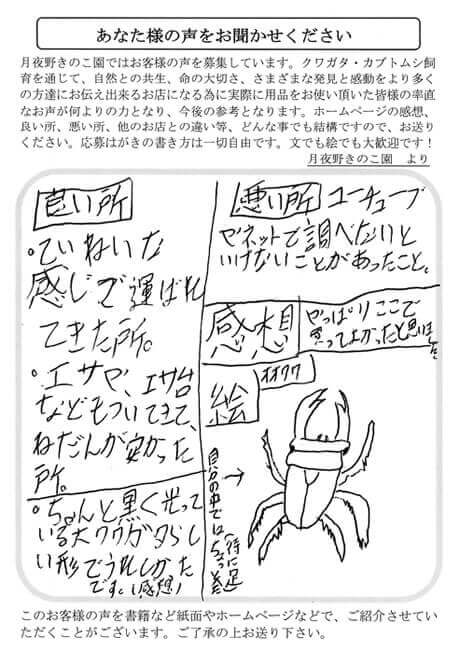 あなた様の声をお聞かせください
月夜野きのこ園ではお客様の声を募集しています。クワガタ・カブトムシ飼
育を通じて、自然との共生、命の大切さ、さまざまな発見と感動をより多く
の方達にお伝え出来るお店になる為に実際に用品をお使い頂いた皆様の率直
なお声が何よりの力となり、今後の参考となります。ホームページの感想、
良い所、悪い所、他のお店との違い等、どんな事でも結構ですので、お送り
ください。応募はがきの書き方は一切自由です。文でも絵でも大歓迎です！
月夜野きのこ園　より
良い所
・ていねいな
感じで運ばれ
てきた所。
・エサや、エサ台
などもついてきて、
ねだんが安かった
所。
・ちゃんと黒く光って
いる大クワガタらし
い形でうれしかった
です。(感想)
悪い所 ユーチューブ
やネットで調べないと
いけないことがあったこと。
感想 やっぱりここで
買ってよかったと思いました。
絵 オオクワ
自分の中では、ちょっと
(特に足
このお客様の声を書籍など紙面やホームページなどで、ご紹介させてい
ただくことがございます。ご了承の上お送り下さい。